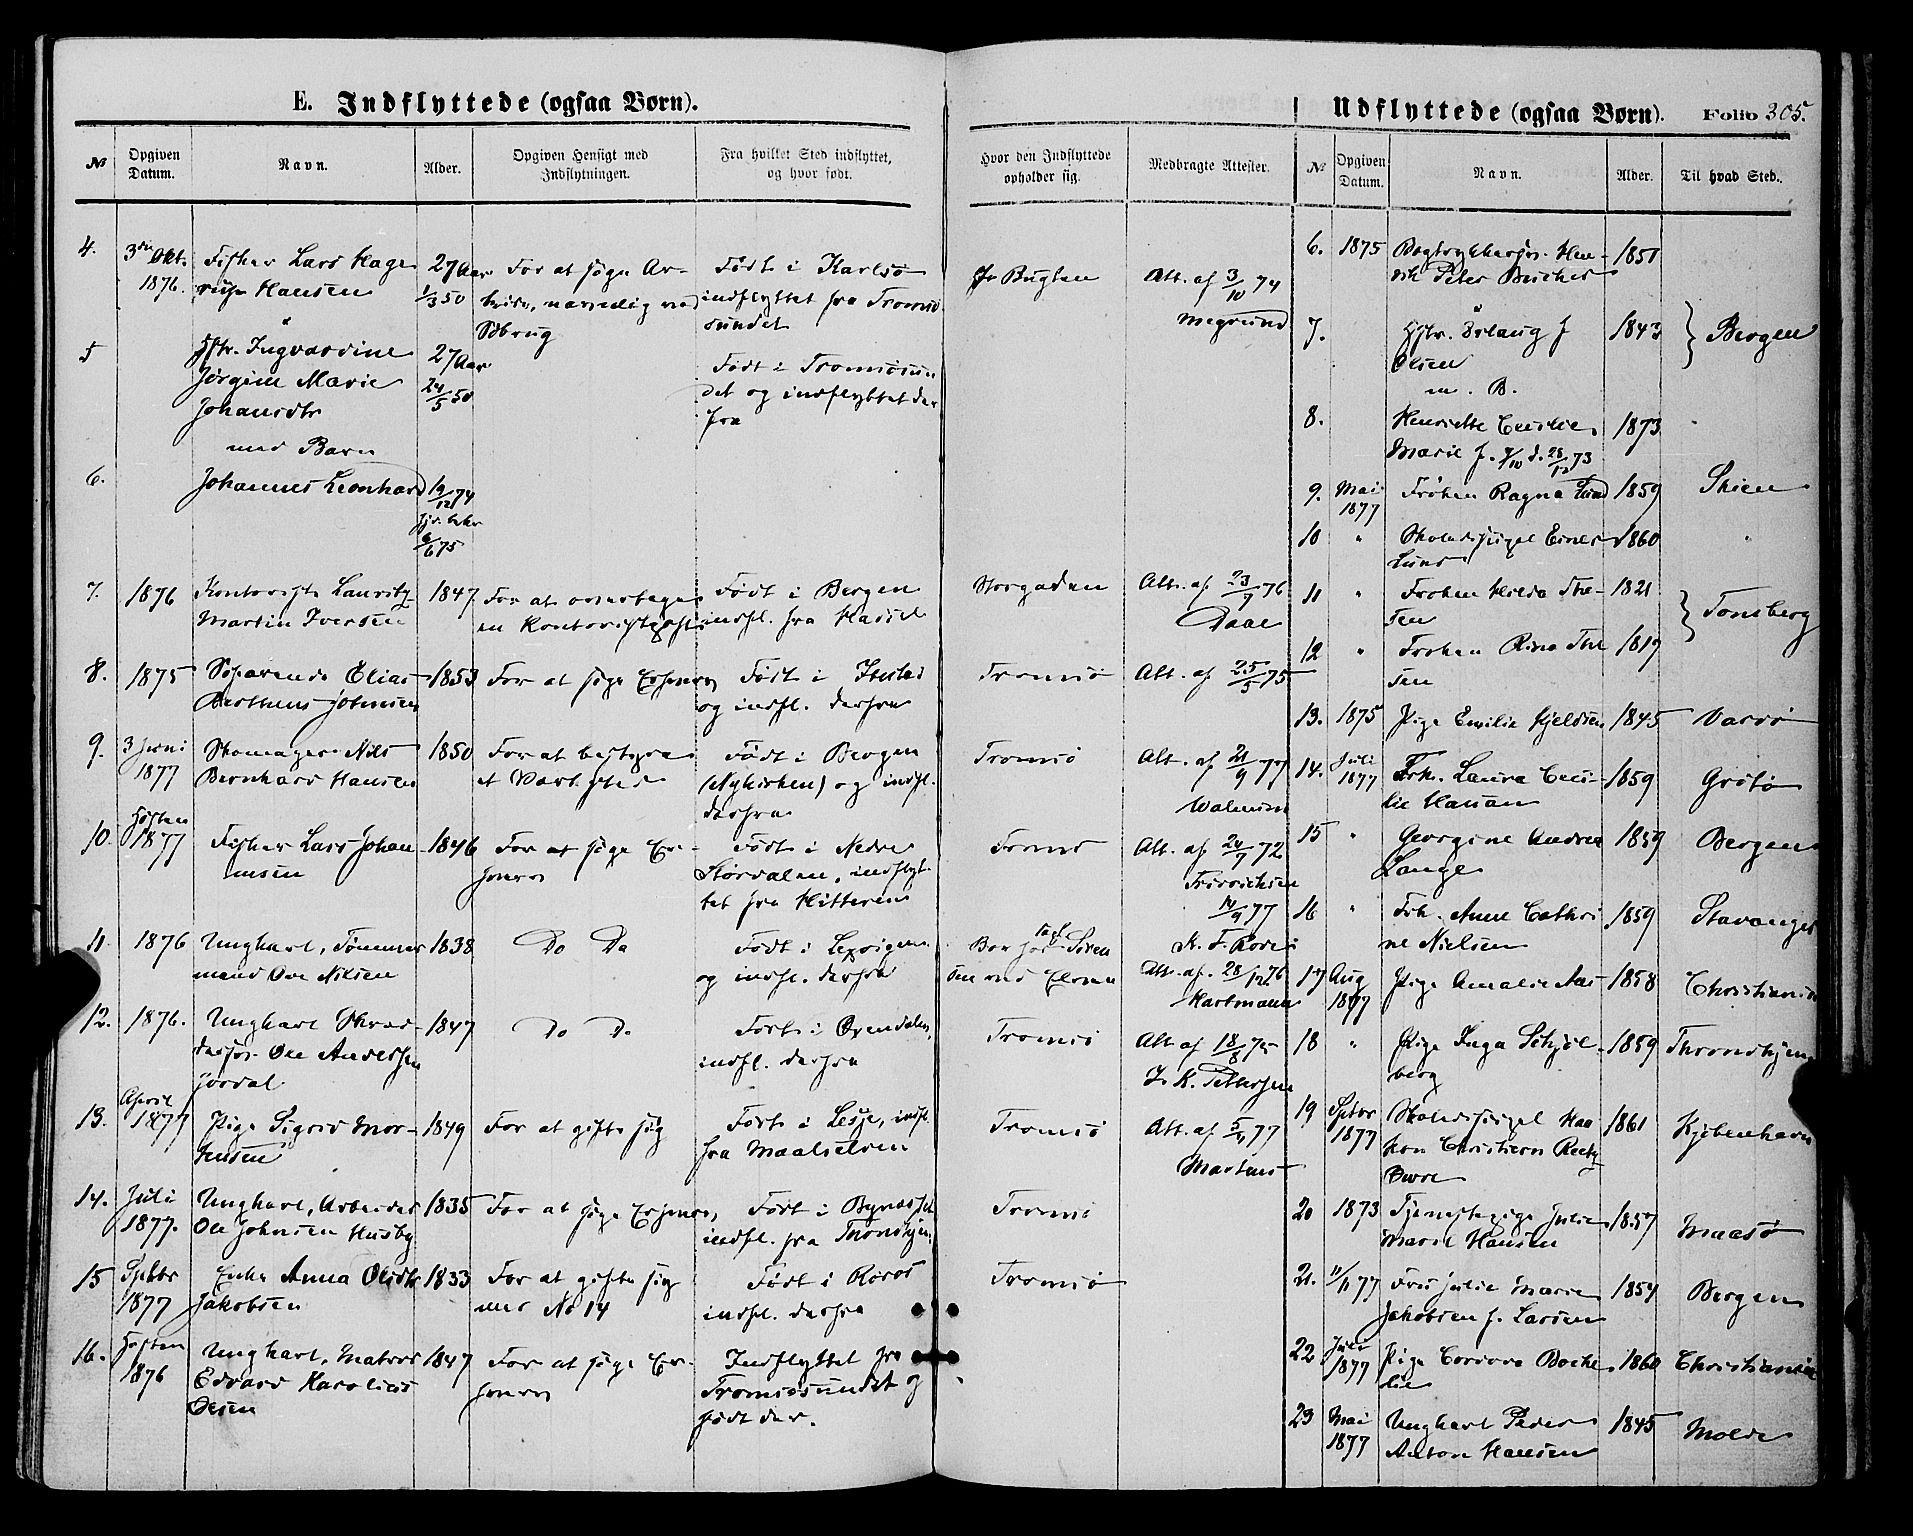 E. Indflyttede (ogsaa Børn).
Udflyttede (ogsaa Børn). Folio 305.
№ Opgiven Datum. Navn. Alder. Opgiven Hensigt med Indflytningen. Fra hvilket Sted indflyttet, og hvor født. Hvor den Indflyttede opholder sig. Medbragte Attester.
№ Opgiven Datum. Navn. Alder. Til hvad Sted.
4. 3die Okt. Fisker Lars Hage- 27 Aar For at søge Ar- Født i Karlsø Att. af 3/10 74
1876. Hansen 1/3 50 nemlig ved indflyttet fra Tromsø- I Bugten
sundet
5 Hstr. Ingvardine 27 Aar Født i Tromsøsun-
Jørgine Marie 24/5 50 det og indflyttet der
Johansdtr fra
med Barn
6. Johannes Leonhard 19/12 74
6/6 75
7. 1876 Kontorist Lauritz 1847 For at overtage Født i Bergen Storgaden Att. af 23/9 76
Martin Iversen en Kontoristpost indfl. fra Hadsel Daae
8. 1875 Søfarende Elias 1853 For at søge Erhverv Født i Tromsø Att. af 25/5 75
Johnsen og indfl. derfra
9. 3 Juni Skomager Nils 1850 For at bestyre Født i Bergen Tromsø Att. af 21/9 77
1877 Bernhard Hansen et Værksted (Nykirken) og indfl.
derfra
10. Høsten Fisker Lars Johan- 1846 For at søge Er- Født i Nedre Tromsø Att. af 24/7 72
1877 nesen hverv Størdalen, indflyt-
tet fra Hitteren 14/9 77
11. 1876 Ungkarl, Tømmer- 1838 Do Do Født i Bor hos Søren- K. F. Rode
mand Ove Nilsen og indfl. derfra sen ved Elven Att. af 28/12 76
Hartmann
12. 1876. Ungkarl Skræd- 1847 Do Do Født i Tromsø Att af 18/8 75
dersv. Ole Anderssen indfl. derfra K. Pettersen
Jordal
13. April Pige Sigrid Mor- 1849 For at gifte sig Født i Lesje, indfl. Tromsø Att. af 5/4 77
1877 tensen fra Maalselven
14. Juli Ungkarl, Arbeider 1835 For at søge Erhverv Født i Bynesset Tromsø
1877. Ole Johnsen Husby indfl. fra Tronhjem
15 Sptbr Enke Anna Olsdtr 1833 For at gifte sig Født i Røros Tromsø
1877 Jakobsen med No 14 indfl. derfra
16. Høsten Ungkarl, Matros 1847 For at søge Er- Indflyttet fra
1876 Edvard Karolius hverv Tromsøsundet og
Olsen født der.
6. 1875 Bogtrykkersv. Hen- 1851
rik Peter
7. Hstr. f 1843 } Bergen
Olsen
m. B.
8. Henriette Cecilie 1873 "
Marie f. 9/10 d. 28/12 73
9. Mai Frøken Ragna Lund 1859 Skien
1877
10 " Skoledisipel Einar 1860 "
Lund
11 " Frøken Hilda The- 1821 } Tønsberg
sen
12 " Frøken Rina The- 1819
sen
13. 1875 Pige Emilie Kjeldsen 1845 Vardø
14. Juli Frk. Laura Ceci- 1859 Grøtø
1877 lie Hansen
15 " Georgine Andrea 1859 Bergen
Lange
16 " Frk. Anne Cathri- 1859 Stavanger
ne Nielsen
17 Aug Pige Amalie Aas 1858 Christiania
1877
18 " Pige Inga Schjøl- 1859 Throndhjem
berg
19 Sptbr Skoledisipel Haa- 1861 Kjøbenhavn
1877 kon Christiern
20 1873 Tjenestepige Julie 1857 Maasø
Marie Hansen
21. 11/11 77 Fru Julie Marie 1854 Bergen
Jakobsen f. Larsen
22 Juli Pige 1860 Christiania
1877
23 Mai Ungkarl Peder 1845 Molde
1877 Anton Hansen